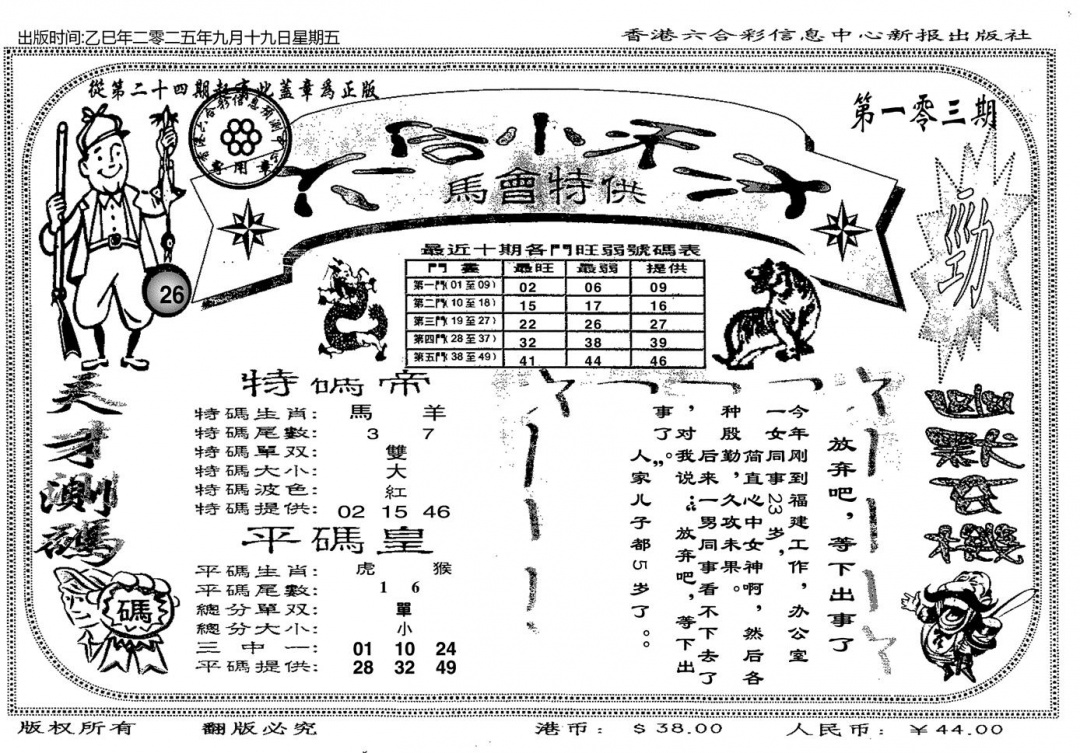 出版时间:乙巳年二零二五年九月十九日星期五
香港六合彩信息中心新报出版社
從第二十四期起有此蓋章爲正版
第一零三期
專用章
馬會特供
勁
26
最近十期各門旺弱號碼表
門畫 最旺 最弱 提供
第一門(01至09) 02 06 09
第二門(10至18) 15 17 16
第三門(19至27) 22 26 27
第四門(28至37) 32 38 39
第五門(38至49) 41 44 46
天才測碼
碼
特碼帝
特碼生肖: 馬 羊
特碼尾數: 3 7
特碼單双: 雙
特碼大小: 大
特碼波色: 紅
特碼提供: 02 15 46
平碼皇
平碼生肖: 虎 猴
平碼尾數: 1 6
總分單双: 單
總分大小: 小
三中一: 01 10 24
平碼提供: 28 32 49
放弃吧，等下出事了
今年刚到福建工作，办公室
一女同事23岁，
简直心中女神啊，然后各
种殷勤，久攻未果。
后来一男同事看不下去了
，对我说：“放弃吧，等下出
事了”。
人家儿子都5岁了。。
幽默玄機
版权所有
翻版必究
港币: $38.00
人民币: ￥44.00